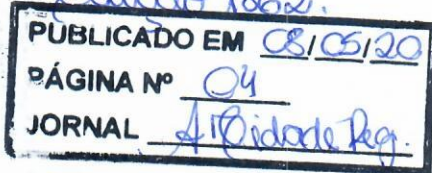 1662.
PUBLICADO EM 08/05/20
PÁGINA Nº 04
JORNAL A Cidade Reg.